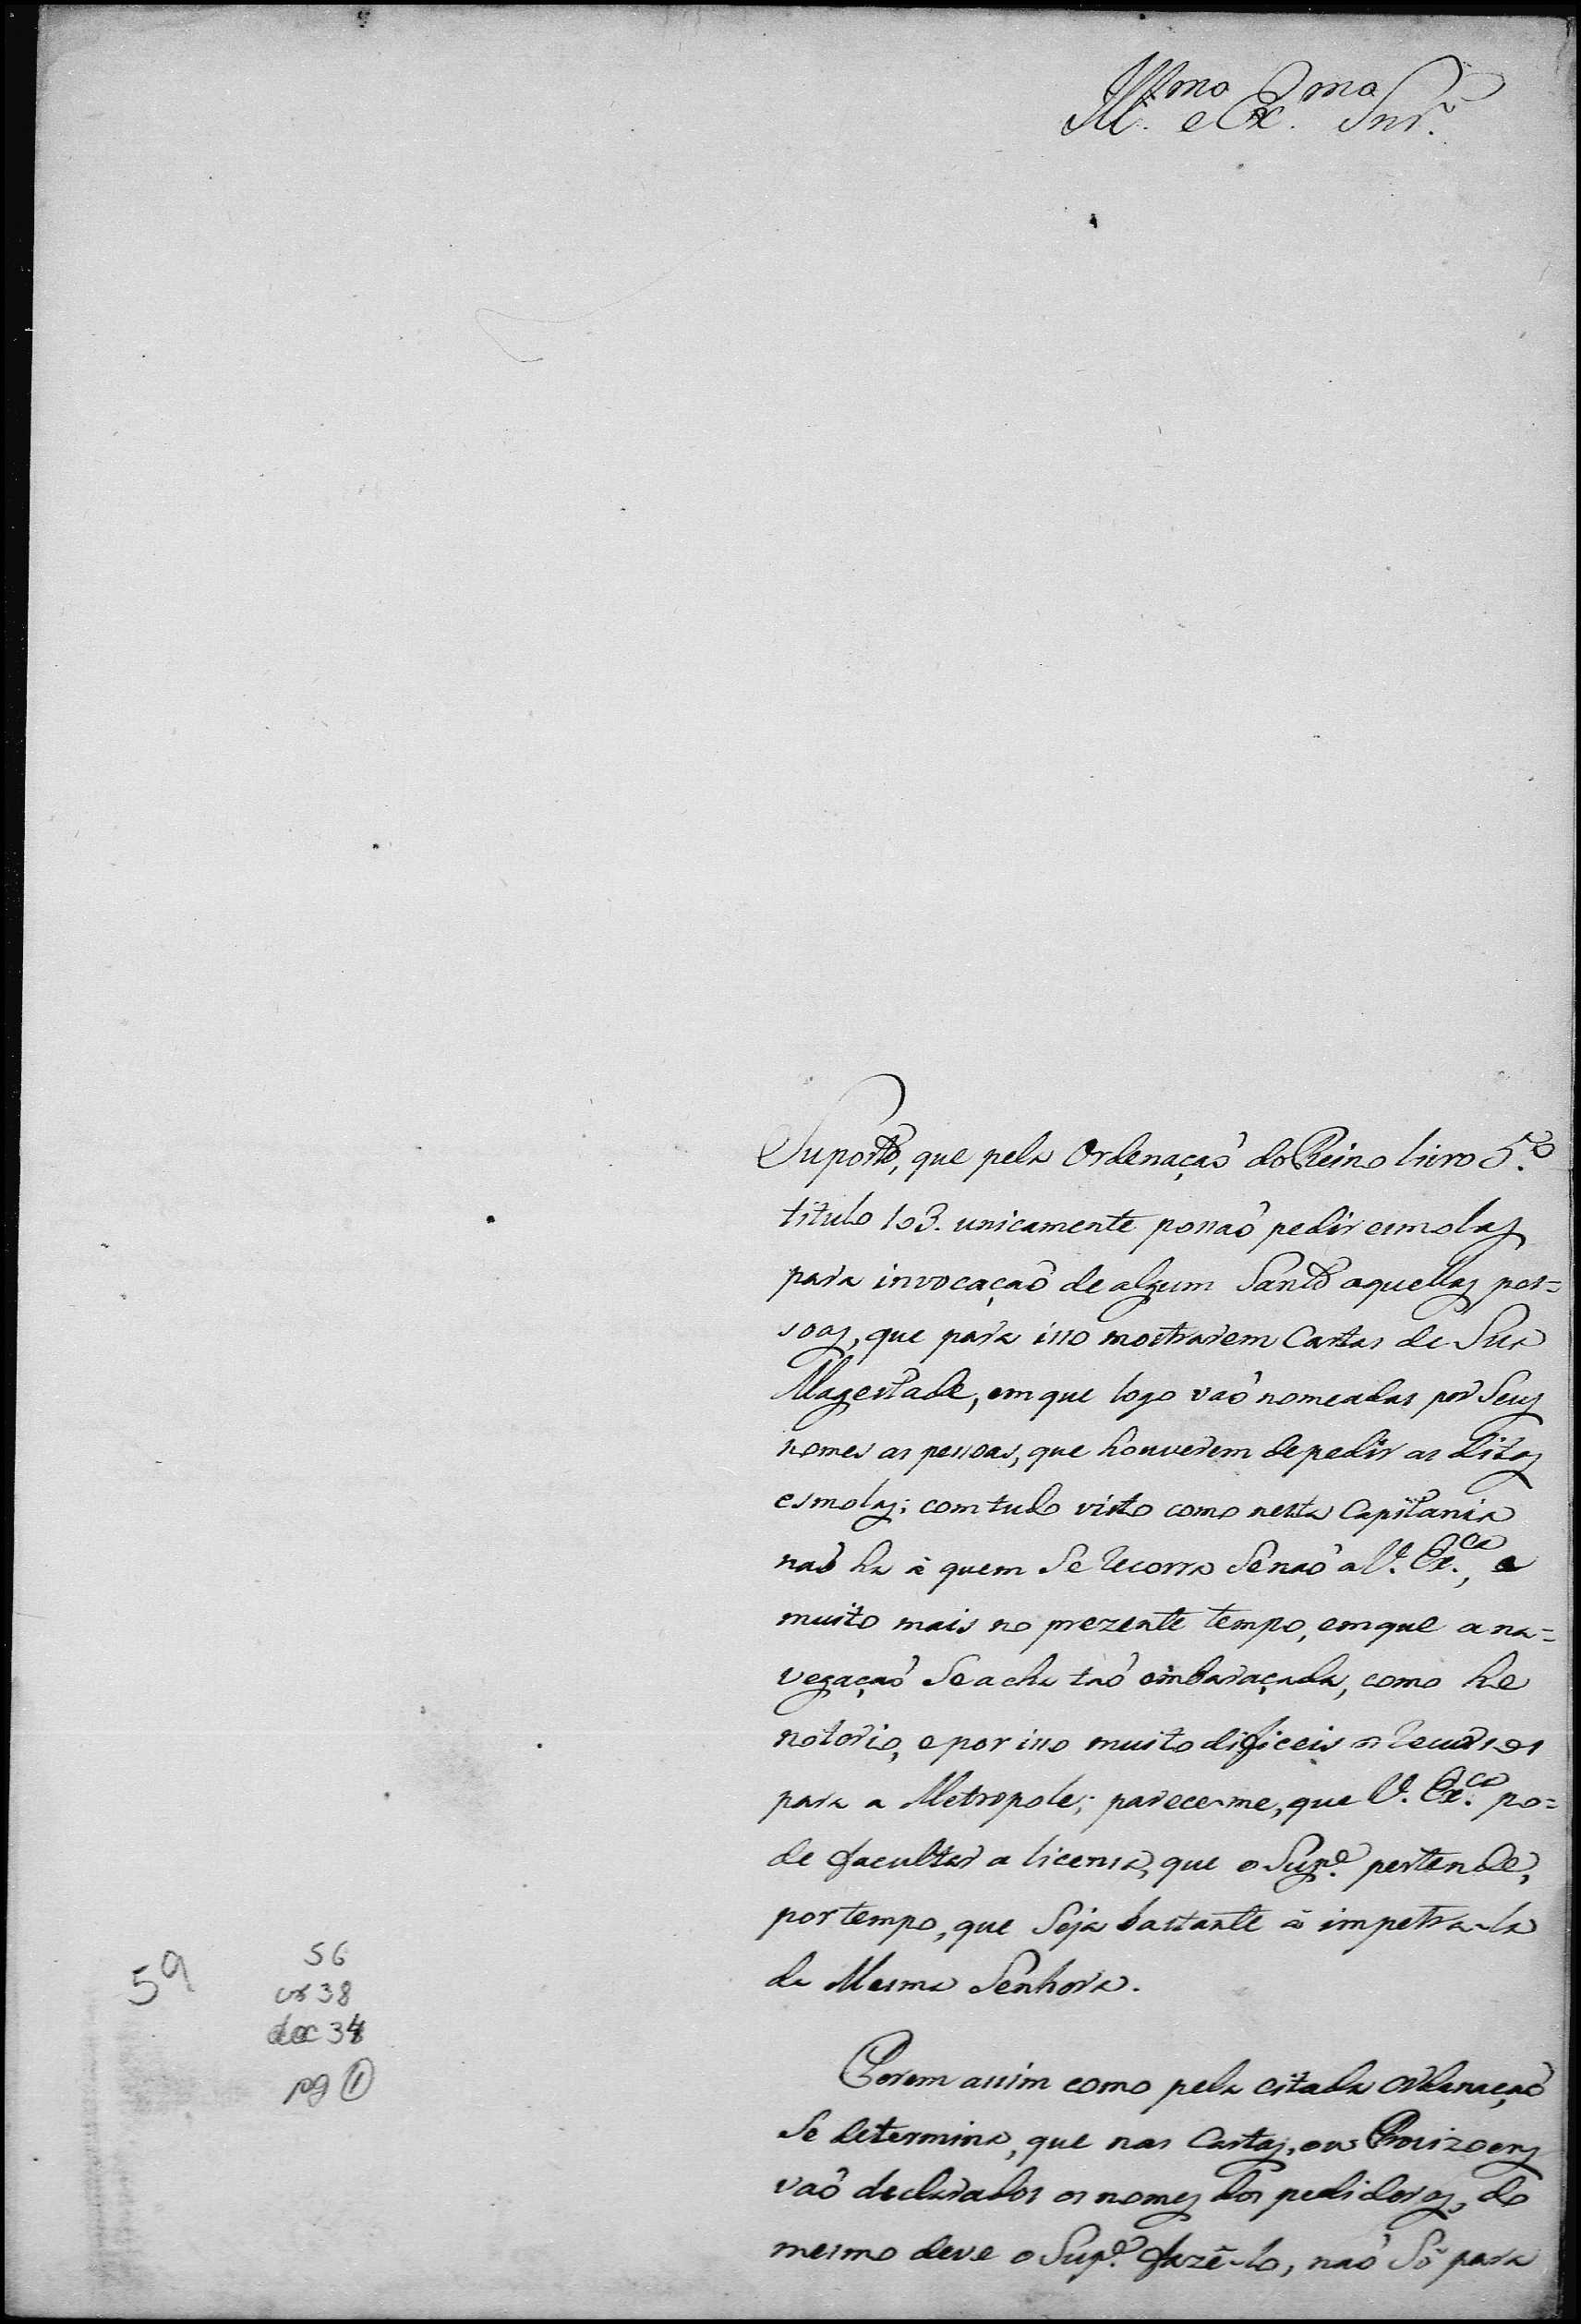 Ill.mo e Ex.mo Snr.
Suposto, que pela Ordenaçaõ do Reino livro 5.º
titulo 103. unicamente possaõ pedir esmolas
para invocaçaõ de algum Santo aquellas pes=
soas, que para isso mostrarem Cartas de Sua
Magestade, em que logo vaõ nomeadas por Seus
nomes as pessoas, que houverem de pedir as ditas
esmolas; com tudo visto como nesta Capitania
naõ ha á quem Se recorra Senaõ a V. Ex.ca, e
muito mais no prezente tempo, em que a na=
vegaçaõ Se acha taõ embaraçada, como he
notorio, e por isso muito dificeis os recursos
para a Metropole; parece-me, que V. Ex.ca po=
de facultar a licensa, que o Sup.e pertende,
por tempo, que Seja bastante á impetra-la
da Mesma Senhora.
Porem assim como pela citada Ordenaçaõ
Se determina, que nas Cartas, ou Provizoens
vaõ declarados os nomes dos pedidores, do
mesmo deve o Sup.e fazê-lo, naõ Só para
5ª
56
cx 38
doc 34
pg 1